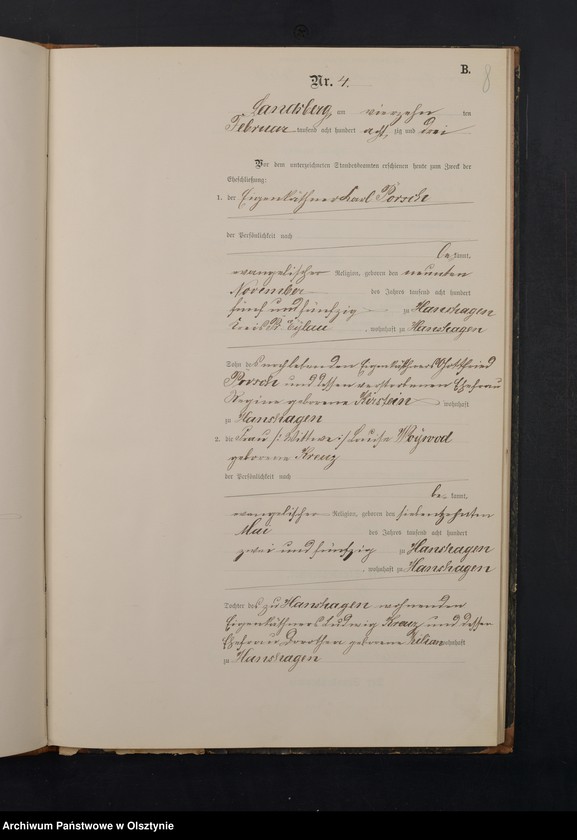 B.
8
Nr. 4.
Landsberg, am vierzehn ten
Februar tausend acht hundert acht zig und drei
Vor dem unterzeichneten Standesbeamten erschienen heute zum Zweck der
Eheschließung:
1. der Eigenkäthner Karl Porsch
der Persönlichkeit nach
be kannt,
evangelischer Religion, geboren den neunten
November des Jahres tausend acht hundert
fünf und fünfzig zu Hanshagen
Kreis Pr. Eylau, wohnhaft zu Hanshagen
Sohn des noch lebenden Eigenkäthners Gottfried
Porsch und dessen verstorbenen Ehefrau
Regine geborene Kirstein wohnhaft
zu Hanshagen
2. die Frau /: Wittwe :/ Louise Woywod
geborene Kreuz
der Persönlichkeit nach
be kannt,
evangelischer Religion, geboren den siebenzehnten
Mai des Jahres tausend acht hundert
zwei und fünfzig zu Hanshagen
, wohnhaft zu Hanshagen
Tochter des zu Hanshagen wohnenden
Eigenkäthners Ludwig Kreuz und dessen
Ehefrau Dorothea geborene wohnhaft
zu Hanshagen
Archiwum Państwowe w Olsztynie